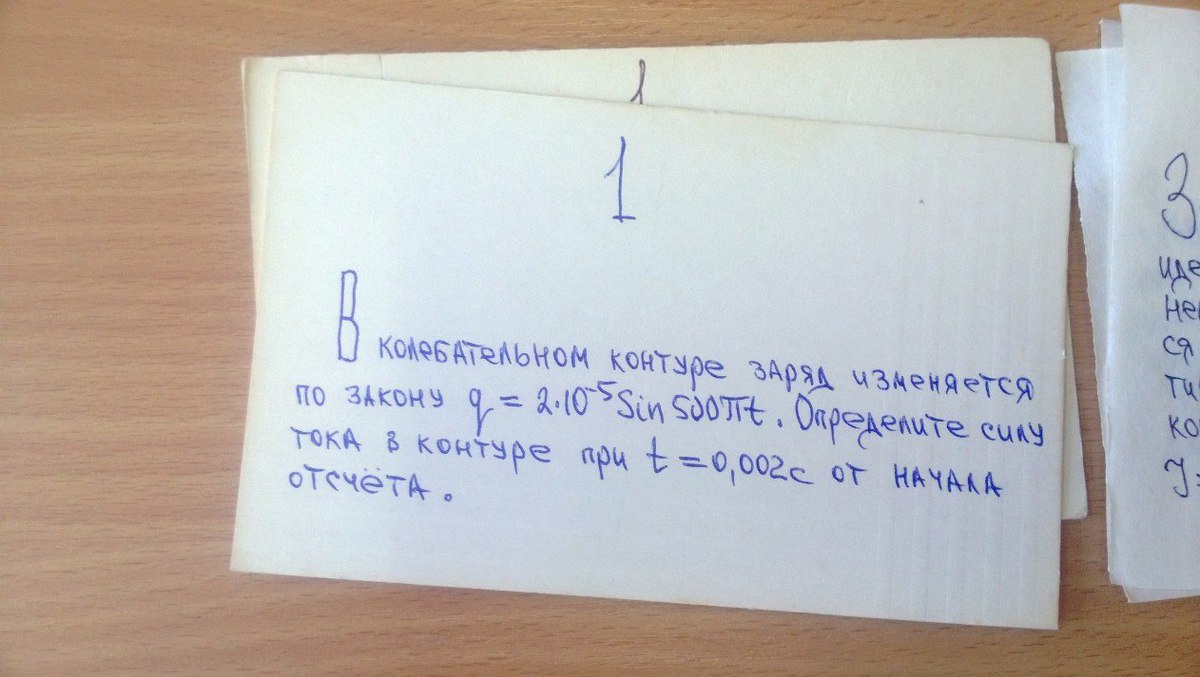 1
1
В колебательном контуре заряд изменяется
по закону q = 2·10⁻⁵Sin500πt. Определите силу
тока в контуре при t=0,002с от начала
отсчёта.
3